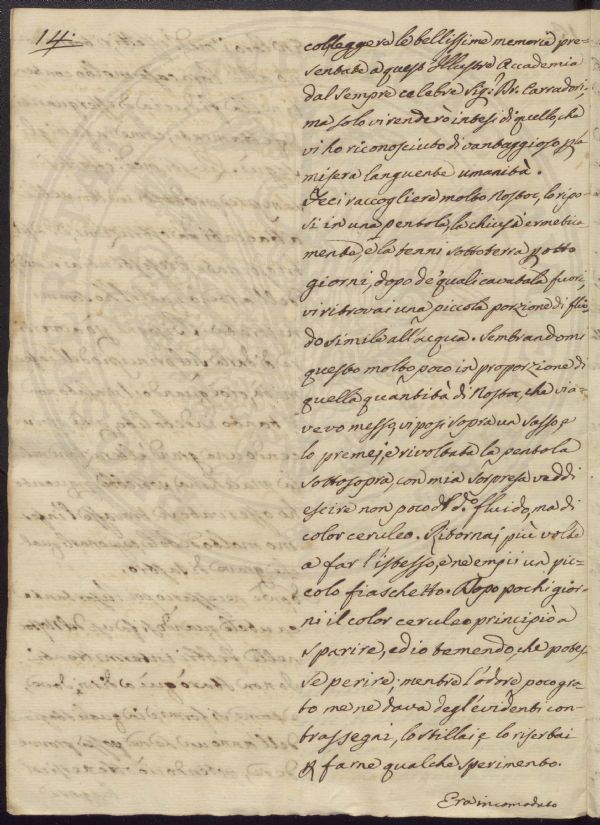 14.
col leggere le bellissime memorie pre-
sentate a questo Illustre Accademia
dal sempre celebre Sig.r Dr. Carradori,
ma solo vi renderò intesi di quello, che
vi ho riconosciuto di vantaggioso pla
misera languente umanità.
Feci raccogliere molto Nostoc, lo ripo-
si in una pentola, la chiusi ermetica
mente, e la tenni sottoterra potto
giorni, dopo de' quali cavatala fuori,
vi ritrovai una piccola porzione di flui-
do simile all'acqua. Sembrandomi
questo molto poco in proporzione di
quella quantità di Nostoc, che vi a-
vevo messo, vi posi sopra un sasso, e
lo premei, e rivoltata la pentola
sottosopra, con mia sorpresa veddi
escire non poco del d.o fluido, ma di
color ceruleo. Ritornai più volte
a far l'istesso, e ne empii un pic-
colo fiaschetto. Dopo pochi gior-
ni il color ceruleo principiò a
sparire, ed io temendo, che potes-
se perire; mentre l'odore poco gra-
to me ne dava degl'evidenti con-
trassegni, lo stillai, e lo riserbai
p farne qualche sperimento.
Era incomodato